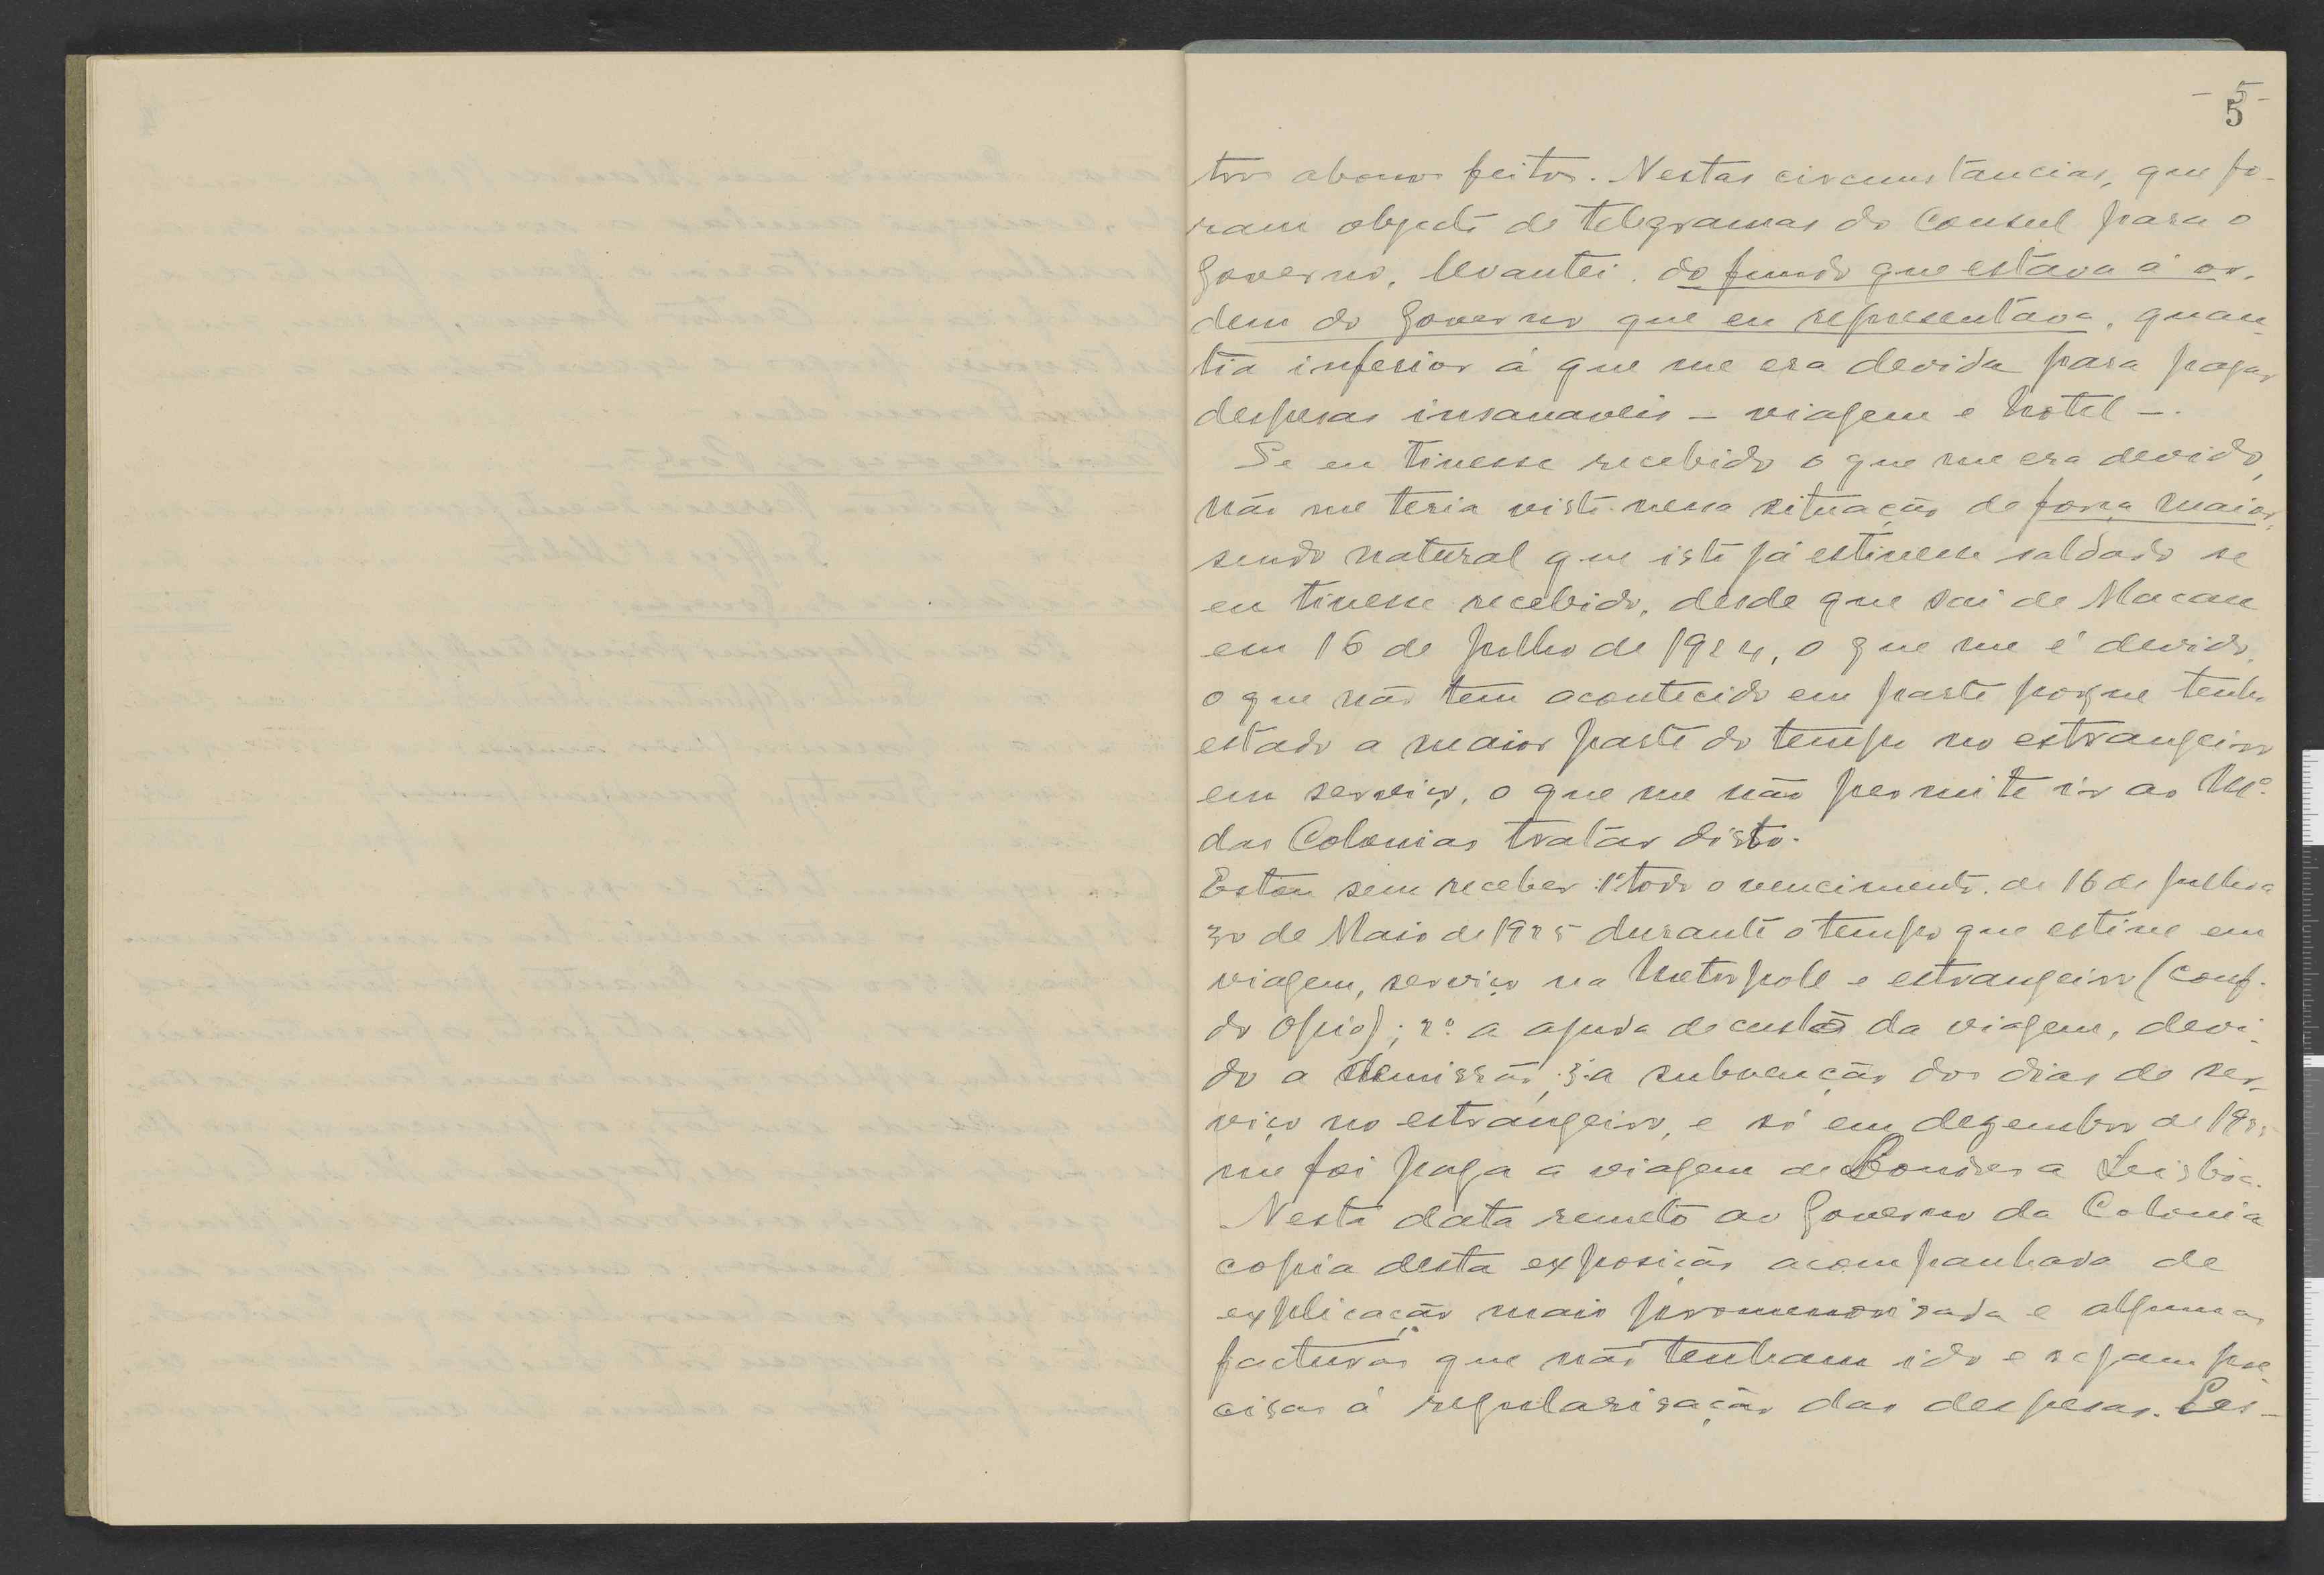 - 5 -
5
tros abonos feitos. Nestas circumstancias, que fo-
ram objecto de telegramas do Consul para o
Governo, levantei do fundo que estava á or-
dem do Governo que eu representava, quan-
tia inferior á que me era devida para pagar
despesas insanaveis - viagem e hotel -.
Se eu tivesse recebido o que me era devido,
não me teria visto nessa situação de força maior,
sendo natural que isto já estivesse saldado se
eu tivesse recebido, desde que sai de Macau
em 16 de Julho de 1924, o que me é devido,
o que não tem acontecido em parte porque tenho
estado a maior parte do tempo no estrangeiro
em serviço, o que me não permite ir ao Mº
das Colonias tratar disto.
Estou sem receber: 1º todo o vencimento de 16 de Julho a
30 de Maio de 1925 durante o tempo que estive em
viagem, serviço na Metropole e estrangeiro (conf.
do Opio); 2º a ajuda de custo da viagem, devi-
do a demissão; 3º a subvenção dos dias de ser-
viço no estrangeiro, e só em dezembro de 1925
me foi paga a viagem de Londres a Lisboa.
Nesta data remeto ao Governo da Colonia
copia desta exposição acompanhada de
explicação mais promenorisada e algumas
facturas que não tenham ido e sejam pre-
cisas á regularisação das despesas. Les-